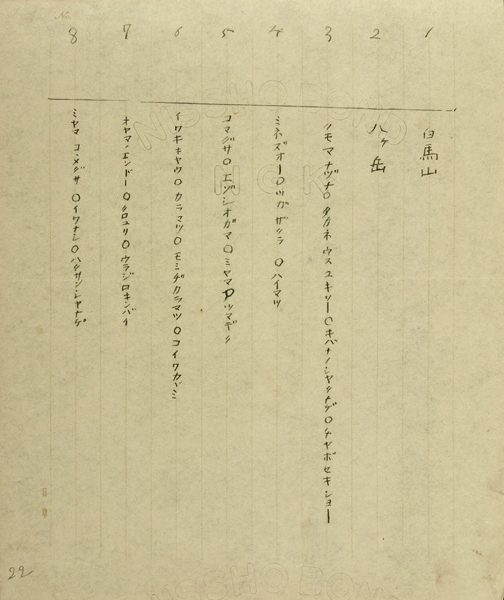 1 白馬山
2 八ヶ岳
3 クモマナヅナ○タカネウスユキソー○キバナノシヤクナゲ○チヤボセキショー
4 ミネズオー○ツガザクラ○ハイマツ
5 コマグサ○エゾシオガマ○ミヤマアツマギク
6 イワキキヤウ○カラマツ○モミヂカラマツ○コイワカヾミ
7 オヤマノエンドー○クロユリ○ウラジロキンバイ
8 ミヤマコメグサ○イワナシ○ハクサンシヤナゲ
22